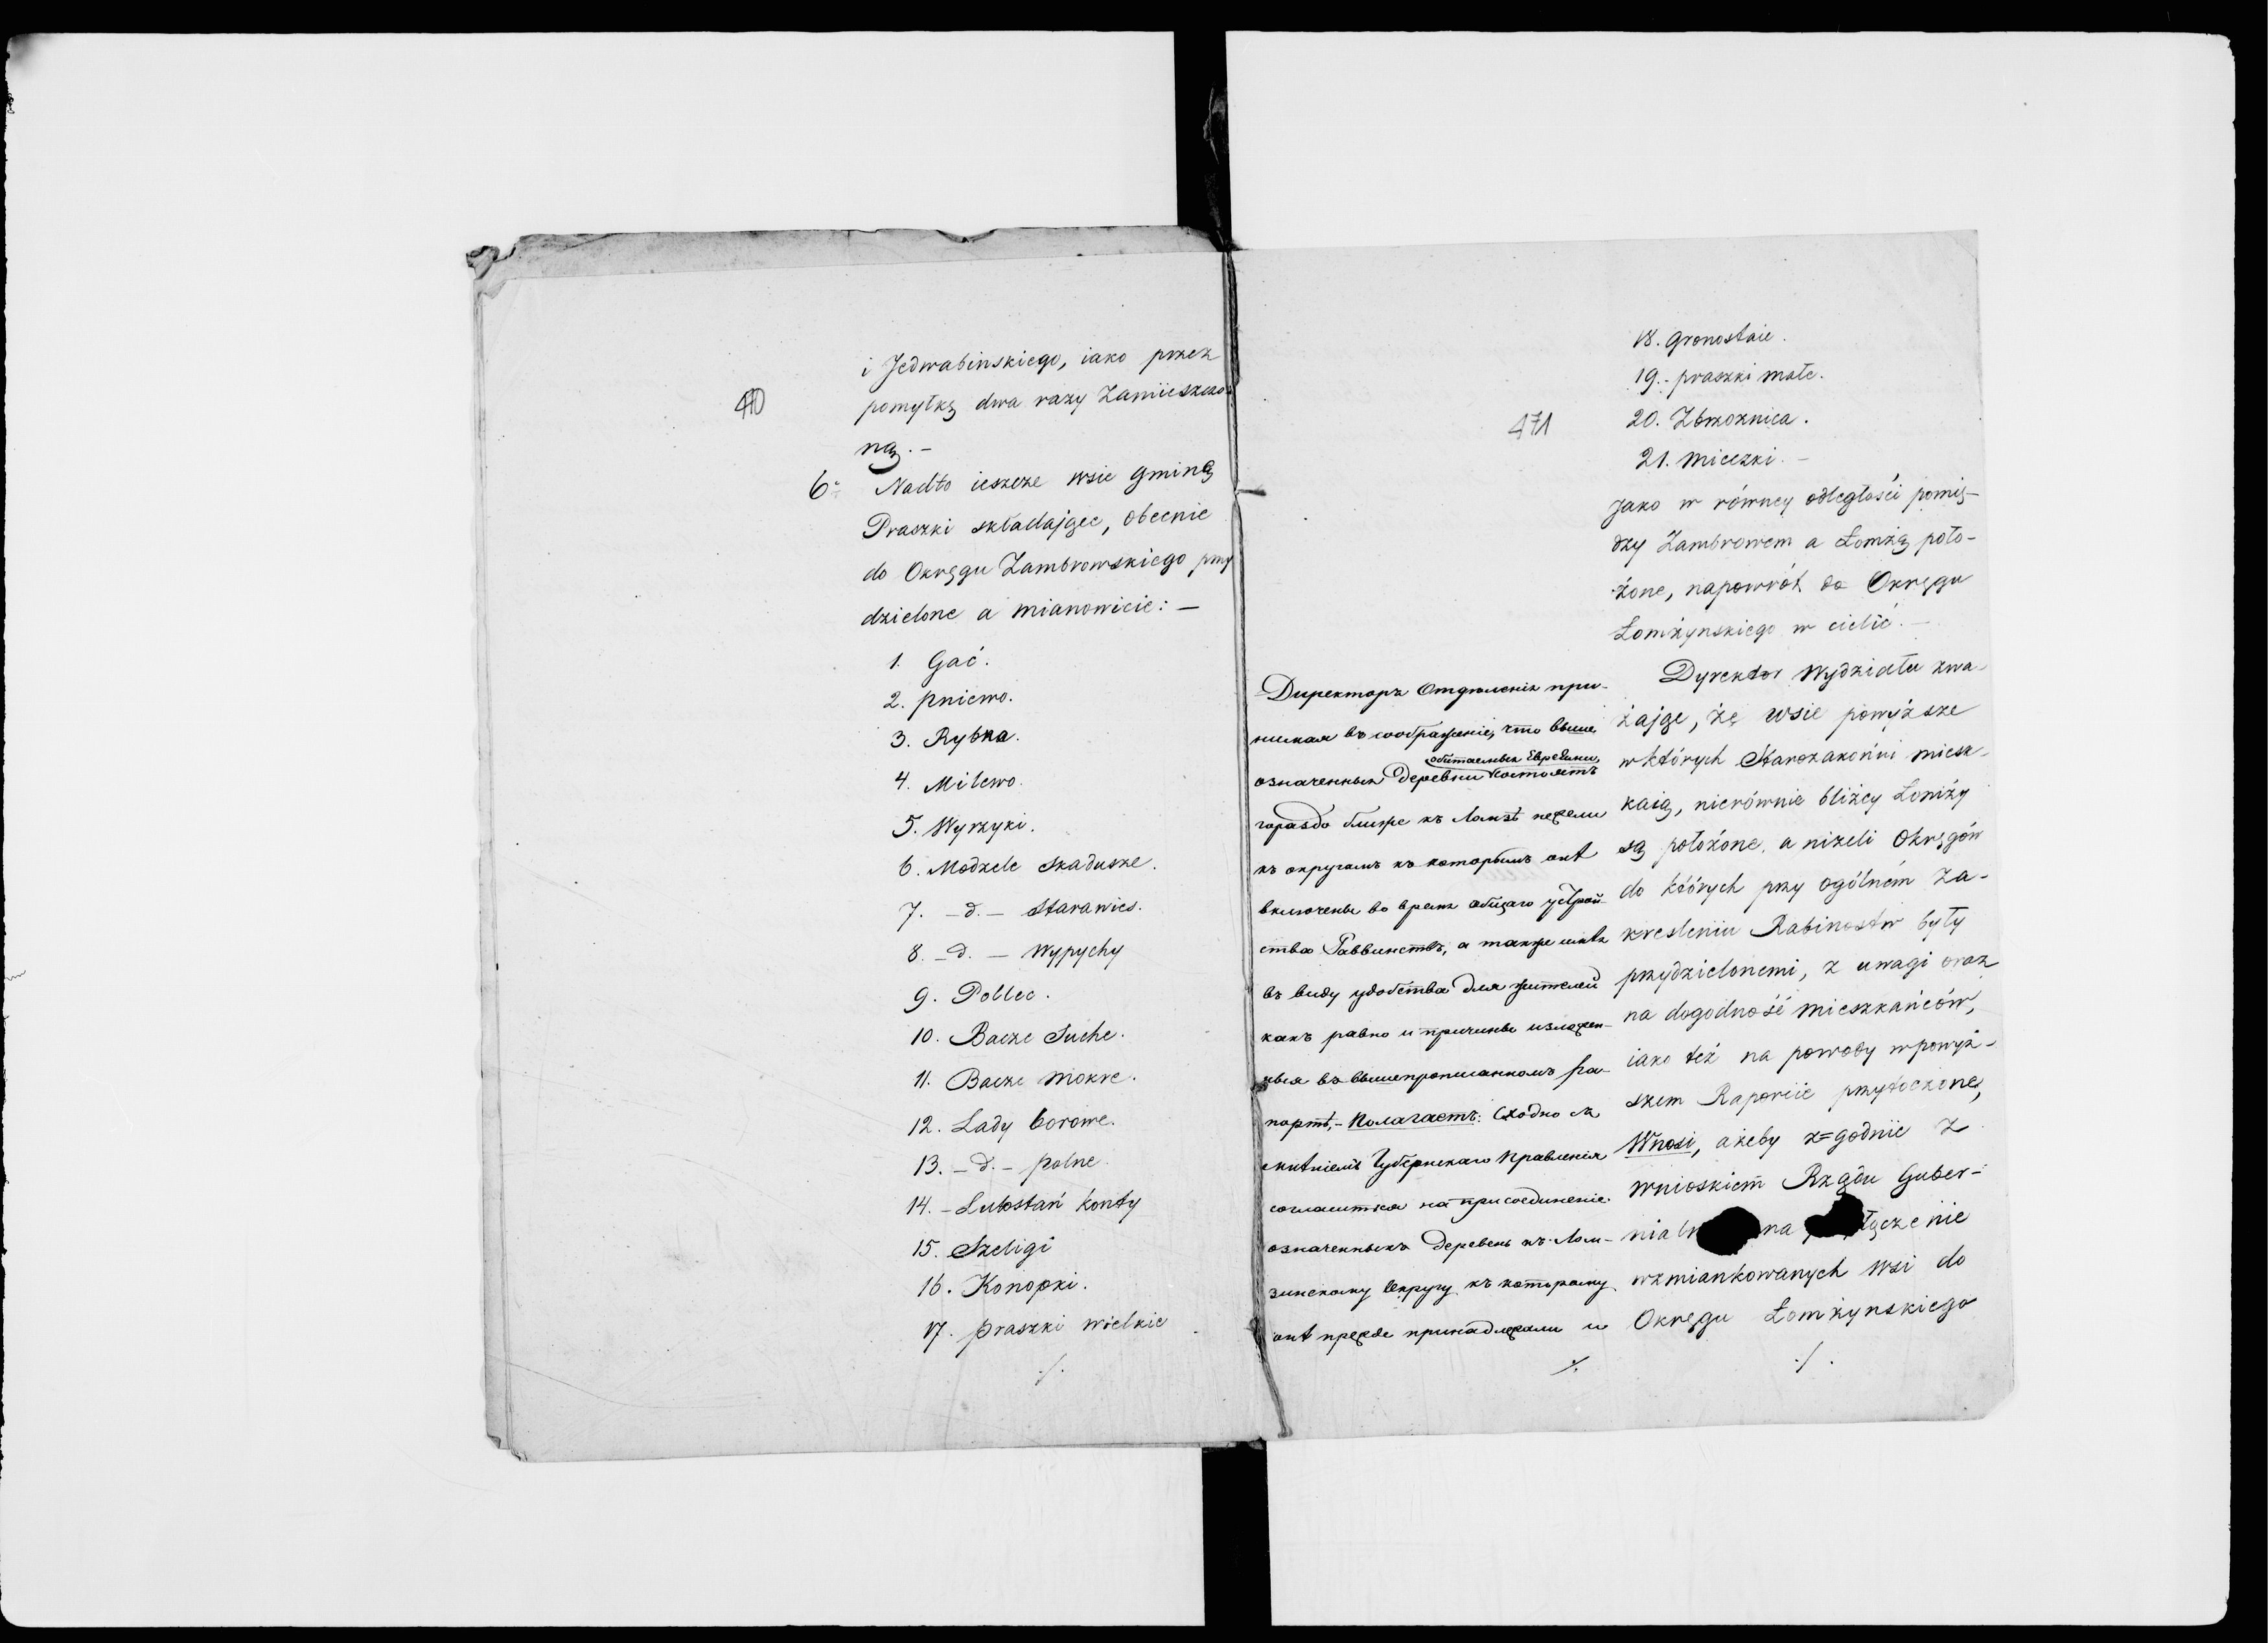 470
i Jedwabinskiego, iako przez
pomyłkę dwa razy Zamieszczo-
ną. –
6. Nadto ieszcze wsie gminę
Praszki składające, obecnie
do Okręgu Zambrowskiego przy
dzielone a mianowicie: –
1. Gać.
2. Pniewo.
3. Rybka.
4. Milewo.
5. Wyrzyki.
6. Modzele Skadusze.
7. – d. – Starawies.
8. – d. – Wypychy
9. Poblec.
10. Bacze Suche.
11. Bacze Mokre.
12. Lady borowe.
13. – d. – polne
14. – Lutostań Konty
15. Szeligi
16. Konopki.
17. Praszki wielkie
./.
471
18. Gronostaie.
19. – praszki małe.
20. Zbrzoznica.
21. Mieczki. –
Jako w równey odległości pomię-
dzy Zambrowem a Łomżą poło-
żone, napowrót do Okręgu
Łomżynskiego w cielić. –
Директоръ Отдѣленія при-
нимая въ соображеніе, что выше
обитаемыя Евреями
означенныя деревни состоятъ
гораздо ближе къ Ломзѣ нежели
къ округамъ къ которымъ онѣ
включены во время общаго устрой-
ства Раввинствъ, а также имѣя
въ виду удобства для жителей
какъ равно и причины изложен-
ныя въ вышепрописанномъ ра-
портѣ, – Полагаетъ: Сходно съ
мнѣніемъ Губернскаго Правленія
согласиться на присоединеніе
означенныхъ деревень къ Лом-
зинскому Округу къ которому
онѣ прежде принадлежали и
./.
Dyrektor Wydziału zwa-
żając, że wsie powyższe
w których Starozakonni miesz-
kaią, nierównie bliżey Łomży
są położone, a niżeli Okręgów
do których przy ogólném za-
kreśleniu Rabinostw były
przydzielonemi, z uwagi oraz
na dogodność mieszkańców,
iako też na powody w powyż-
szem Raporcie przytoczone,
Wnosi, ażeby z=godnie z
wnioskiem Rządu Guber-
nialn na łączenie
wzmiankowanych wsi do
Okręgu Łomżynskiego
./.